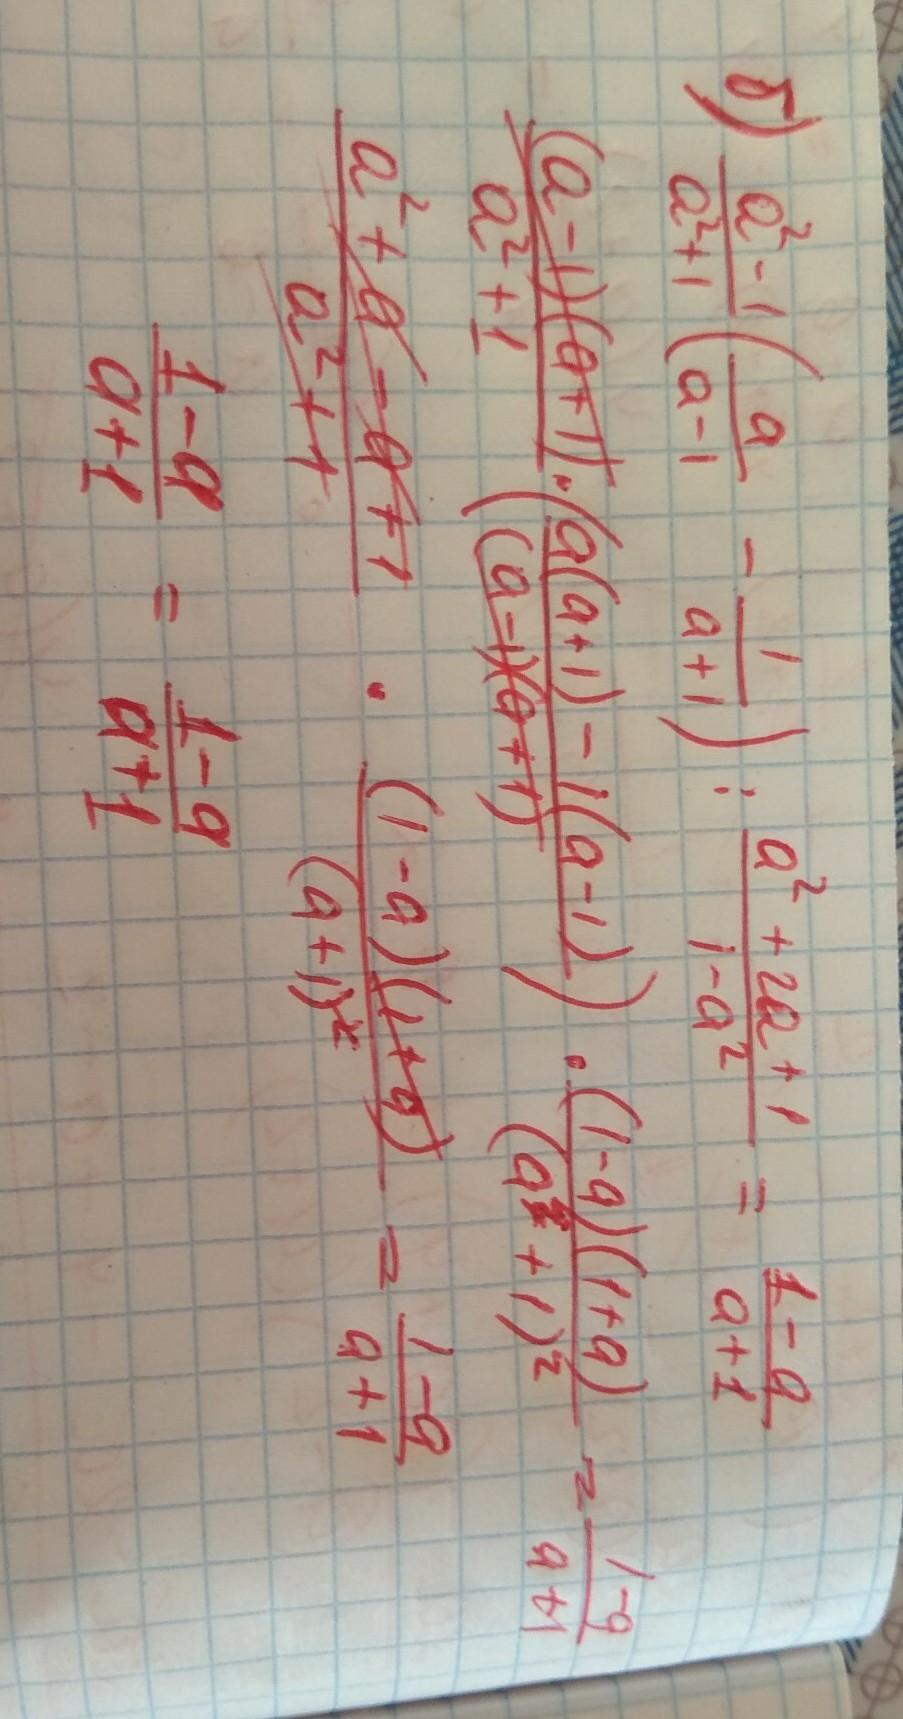 б) (a² - 1)/(a² + 1) (a/(a - 1) - 1/(a + 1)) : (a² + 2a + 1)/(1 - a²) = (1 - a)/(a + 1)
(a - 1)(a + 1)/(a² + 1) · ((a(a + 1) - 1(a - 1))/((a - 1)(a + 1))) · (1 - a)(1 + a)/(a + 1)² = (1 - a)/(a + 1)
(a² + a - a + 1)/(a² + 1) · (1 - a)(1 + a)/(a + 1)² = (1 - a)/(a + 1)
(1 - a)/(a + 1) = (1 - a)/(a + 1)